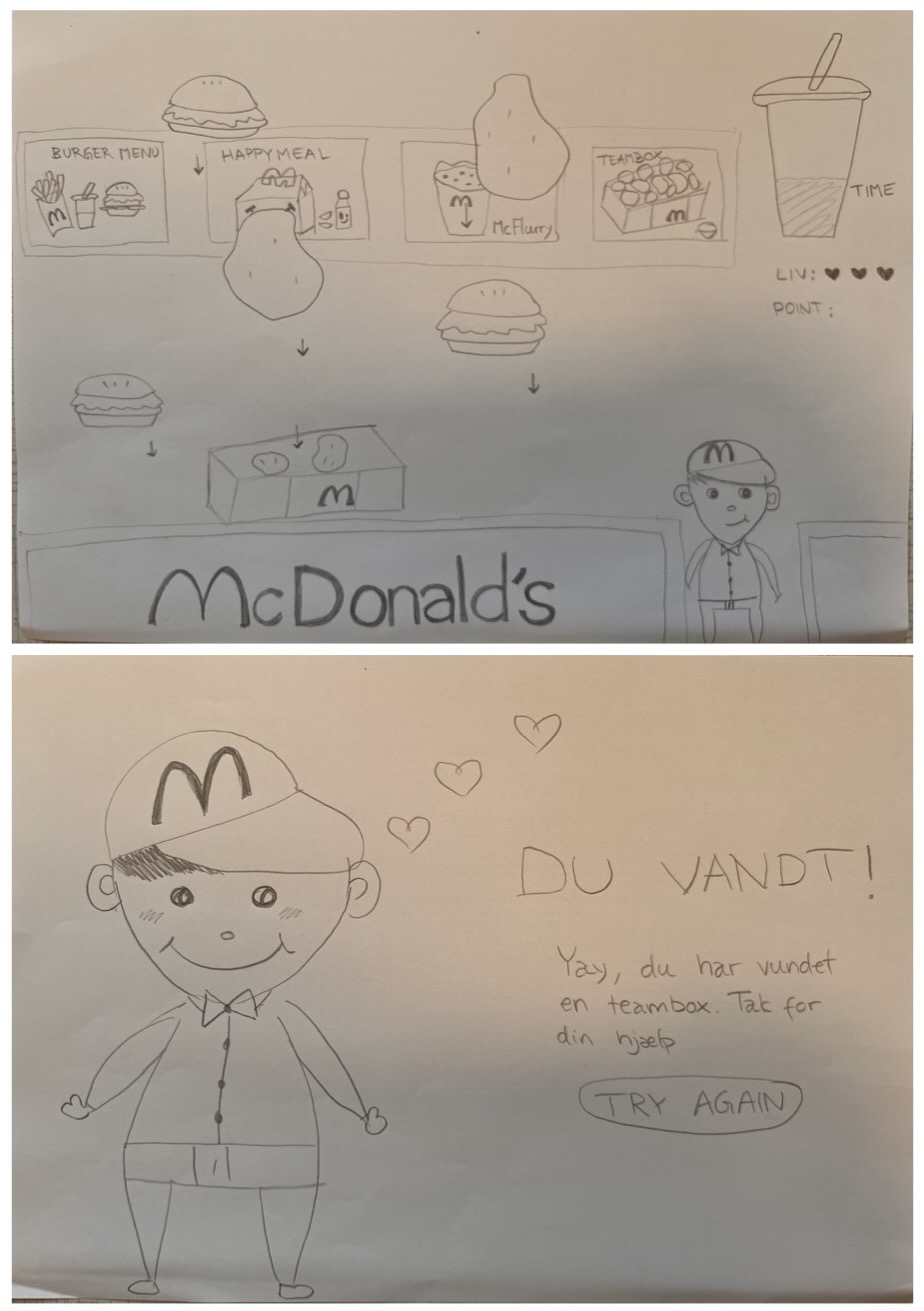 BURGER MENU
HAPPY MEAL
TEAMBOX
M
M
McFlurry
M
TIME
LIV:
POINT:
M
M
McDonald's
M
DU VANDT!
Yay, du har vundet
en teambox. Tak for
din hjælp
TRY AGAIN